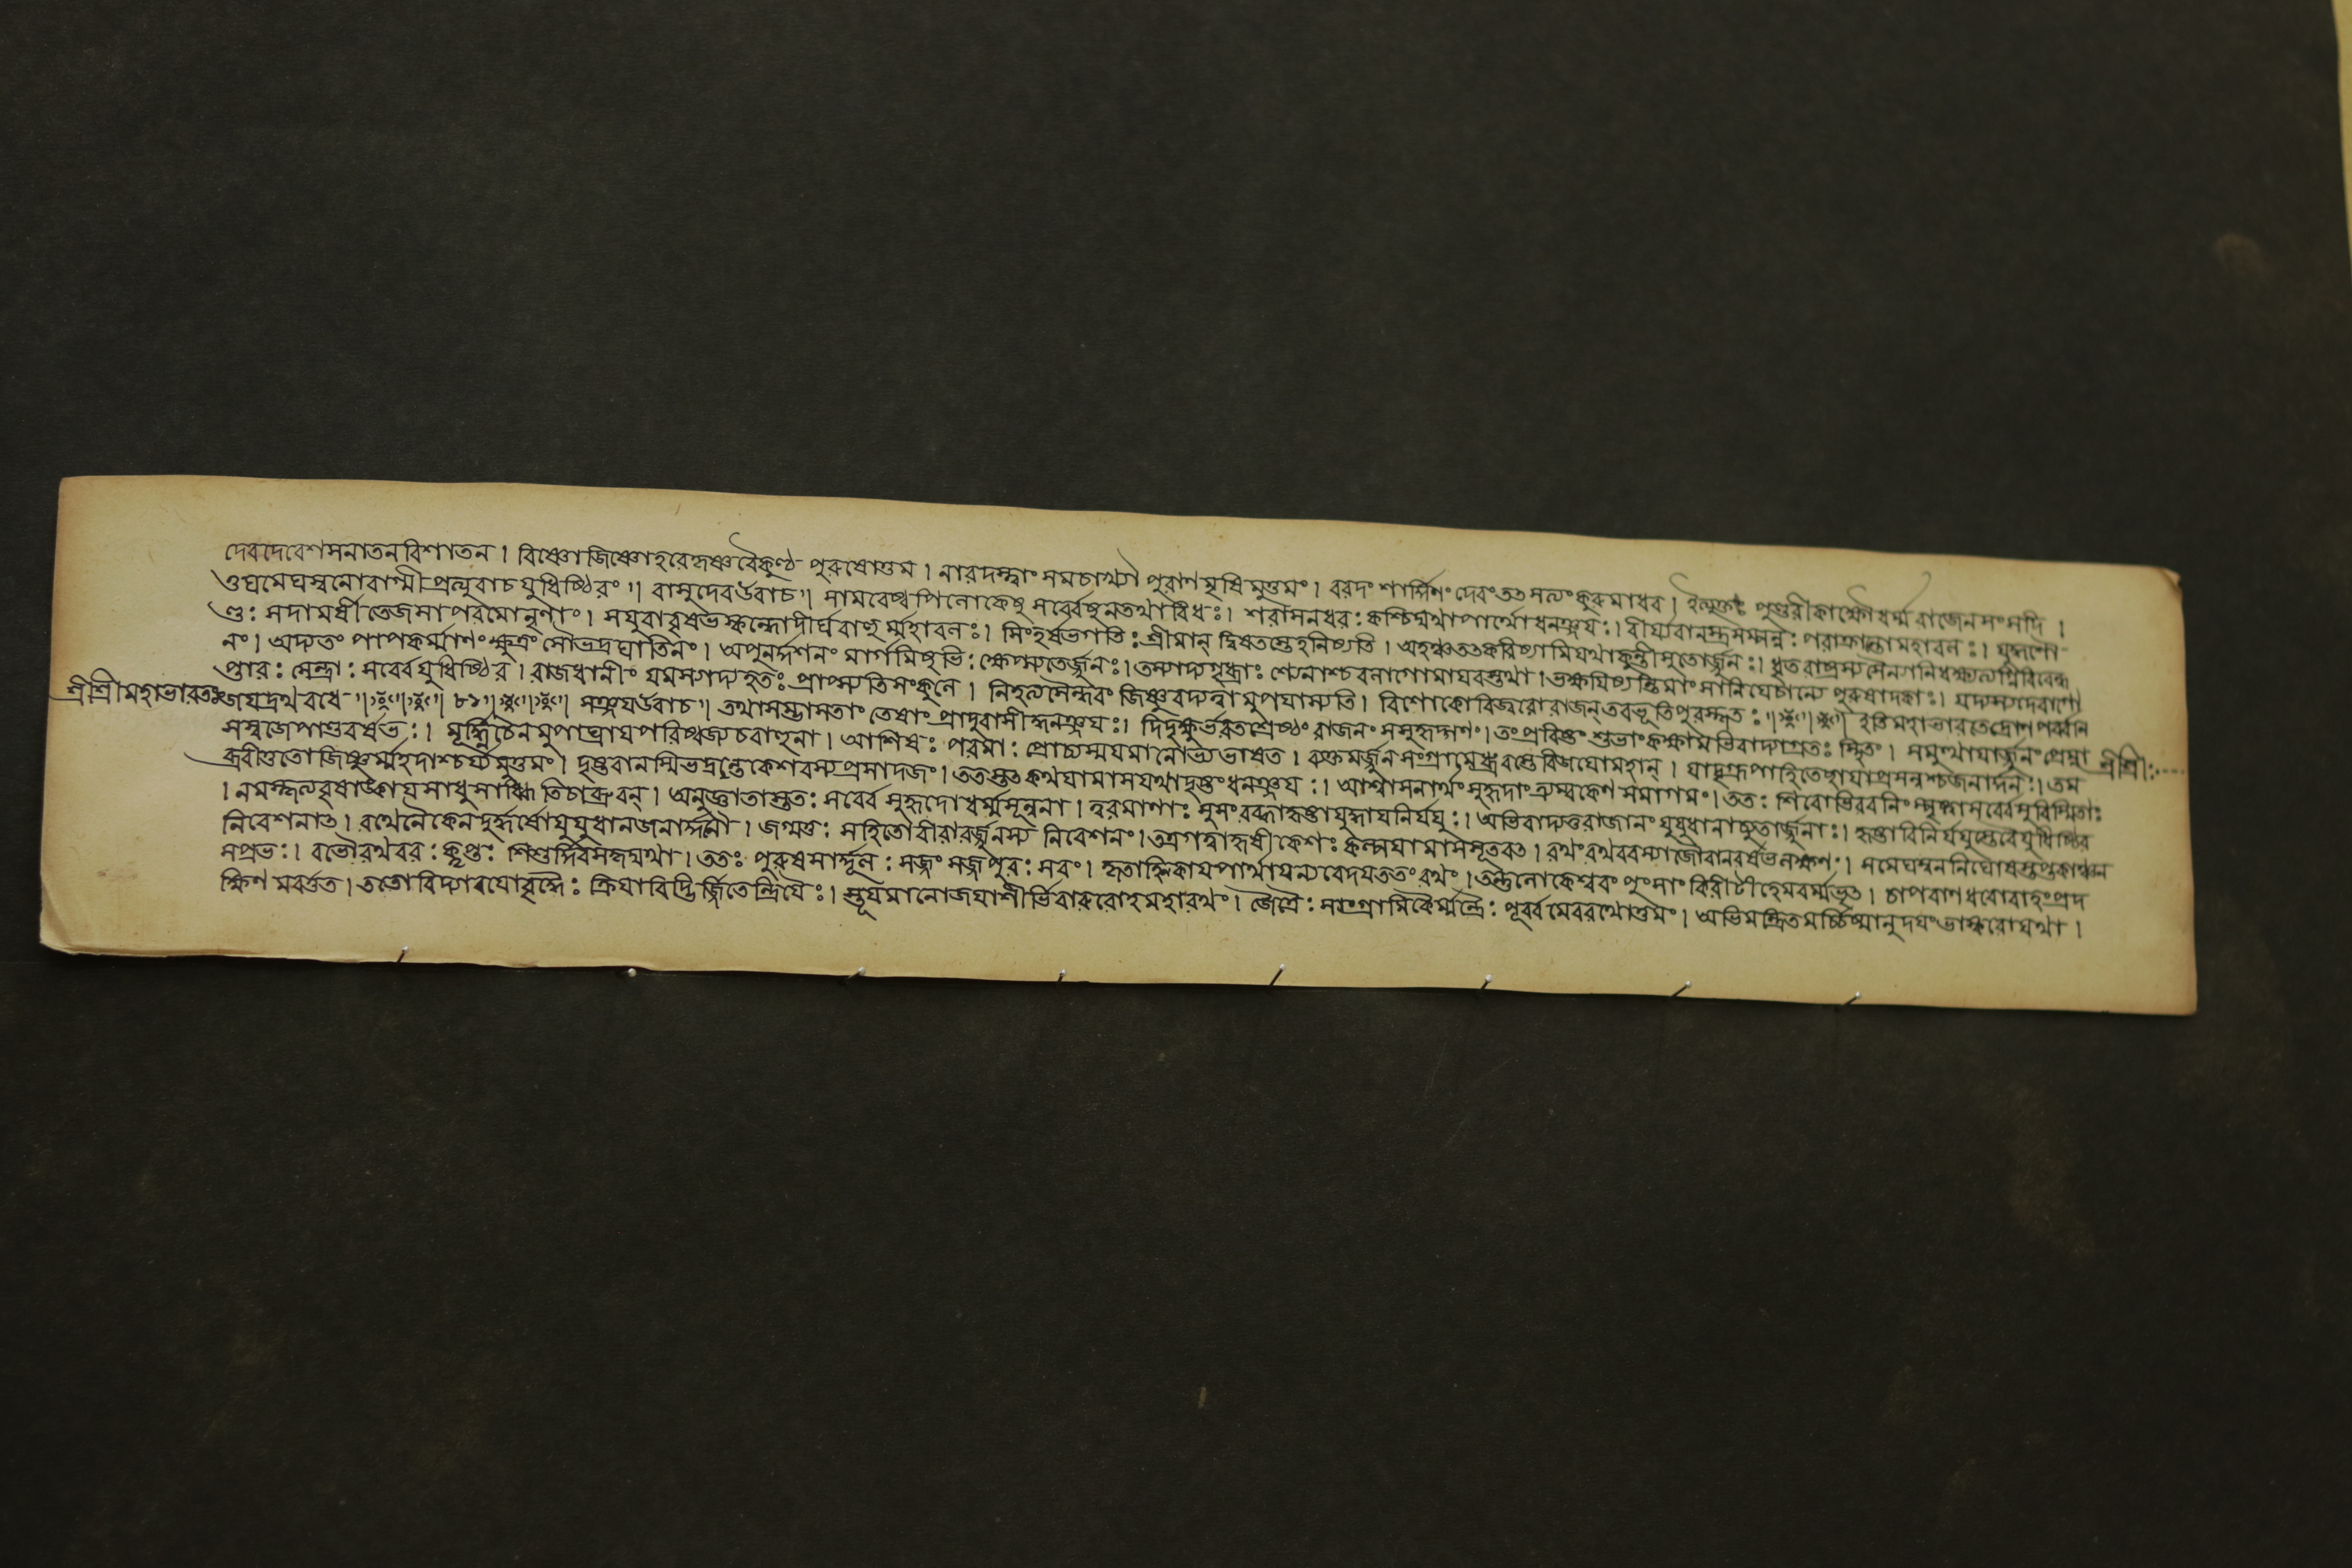 দেবদেবেশসনাতনবিশাতন। বিষ্ণোজিষ্ণোহরেকৃষ্ণবৈকুণ্ঠ পুরুষোত্তম। নারদস্ত্বাং সমাচখ্যৌ পুরাণমৃষিমুত্তমং। বরদং শার্ঙ্গিনং দেবং তৎ সত্যং কুরু মাধব। ইত্যুক্তঃ পুণ্ডরীকাক্ষোধর্ম্মরাজেনসংসদি।
ওঘমেঘস্বনোবাগ্মীপ্রত্যুবাচযুধিষ্ঠিরং॥ বাসুদেবউবাচ॥ সামরেষ্বপিলোকেষু সর্ব্বেষুনতথাবিধঃ। শরাসনধরঃ কশ্চিদ্যথাপার্থোধনঞ্জয়ঃ। বীর্য্যবানস্ত্রসম্পন্নঃ পরাক্রান্তোমহাবলঃ। যুদ্ধশৌ
ণ্ডঃ সদামর্ষীতেজসাপরমোনৃণাং। সযুবাবৃষভস্কন্ধোদীর্ঘবাহুর্ম্মহাবলঃ। সিংহর্ষভগতিঃ শ্রীমান্ দ্বিষতস্তেহনিষ্যতি। অহঞ্চতৎকরিষ্যামিযথাকুন্তীসুতোর্জ্জুনঃ। ধৃতরাষ্ট্রস্যসৈন্যানিধক্ষ্যত্যগ্নিরিবেন্ধ
নং। অদ্যতং পাপকর্ম্মাণং ক্ষুদ্রং সৌভদ্রঘাতিনং। অপুনর্দ্দর্শনং মার্গমিষুভিঃ ক্ষেপ্স্যতের্জ্জুনঃ। তস্যাদ্যগৃধ্রাঃ শ্যেনাশ্চবলাগোমায়বস্তথা। ভক্ষয়িষ্যন্তিমাংসানিযেচান্যে পুরুষাদকাঃ। যদ্যস্যদেবাগো
প্তারঃ সেন্দ্রাঃ সর্ব্বেযুধিষ্ঠির। রাজধানীং যমস্যাদ্যহতঃ প্রাপ্স্যতিসংকুলে। নিহত্যসৈন্ধবং জিষ্ণুরদ্যত্বামুপযাস্যতি। বিশোকোবিজ্বরোরাজন্ তবভূতিপুরস্কৃতঃ॥ ইতিমহাভারতেদ্রোণপর্ব্বনি
শ্রীশ্রীমহাভারতঃ জয়দ্রথবধে ॥ ৮১॥ সঞ্জয়উবাচ॥ তথাসম্ভাষতাং তেষাং প্রাদুরাসীদ্ধনঞ্জয়ঃ। দিদৃক্ষুর্ভরতশ্রেষ্ঠং রাজনং সসুহৃদ্গণং। তং প্রবিষ্টং শুভাংকক্ষামভিবাদ্যাগ্রতঃ স্থিতং। সমুত্থায়ার্জ্জুনং প্রেম্না শ্রীশ্রীঃ
সস্বজেপাণ্ডবর্ষভঃ। মূর্দ্ধ্নিচৈনমুপাঘ্রায়পরিষ্বজ্যচবাহুনা। আশিষঃ পরমাঃ প্রোচ্যস্ময়মানোভ্যভাষত। ব্যক্তমর্জ্জুনসংগ্রামেধ্রুবস্তেবিজয়োমহান্। যাদৃগ্রূপাহিতেছায়াপ্রসন্নশ্চজনার্দ্দনঃ। তম
ব্রবীত্ততোজিষ্ণুর্ম্মহদাশ্চর্য্যমুত্তমং। দৃষ্টবানস্মিভদ্রন্তেকেশবস্যপ্রসাদজং। ততস্তৎকথয়ামাসযথাদৃষ্টংধনঞ্জয়ঃ। আশ্বাসনার্থং সুহৃদাং ত্র্যম্বকেণসমাগমং। ততঃ শিরোভিরবনিংস্পৃষ্ট্বাসর্ব্বেসুবিস্মিতাঃ
। নমস্কৃত্যবৃষাঙ্কায়সাধুসাধ্বিতিচাব্রুবন্। অনুজ্ঞাতাস্ততঃ সর্ব্বেসুহৃদোধর্ম্মসূনুনা। ত্বরমাণাঃ সুসংরব্ধাহৃষ্টাযুদ্ধায়নির্যযুঃ। অভিবাদ্যতুরাজানং যুযুধানাচ্যুতার্জ্জুনাঃ। হৃষ্টাবিনির্যযুস্তেবৈযুধিষ্ঠির
নিবেশনাৎ। রথেনৈকেনদুর্দ্ধর্ষৌযুযুধানজনার্দ্দনৌ। জগ্মতুঃ সহিতৌবীরাবর্জ্জুনস্য নিবেশনং। তত্রগত্বাহৃষীকেশঃ কল্পয়ামাসসূতবৎ। রথং রথবরস্যাজৌবানরর্ষভলক্ষণং। সমেঘস্বননির্ঘোষস্তপ্তকাঞ্চন
সপ্রভঃ। বভৌরথবরঃ কৢপ্তঃ শিশুর্দ্দিবসকৃদ্যথা। ততঃ পুরুষশার্দ্দূলঃ সজ্জং সজ্জপুরঃ সরং। কৃতাহ্নিকায়পার্থায়ন্যবেদয়ততংরথং। তন্তুলোকেশ্বরং পুংসাং কিরীটীহেমবর্ম্মভৃৎ। চাপবাণধরোবাহংপ্রদ
ক্ষিণমবর্ত্তত। ততোবিদ্যাবয়োবৃদ্ধৈঃ ক্রিয়াবিদ্ভির্জ্জিতেন্দ্রিয়ৈঃ। স্তূয়মানোজয়াশীর্ভিরারুরোহমহারথং। জৈত্রৈঃ সাংগ্রামিকৈর্ম্মন্ত্রৈঃ পূর্ব্বমেবরথোত্তমং। অভিমন্ত্রিতমর্চ্চিষ্মানুদয়ংভাস্করোযথা।